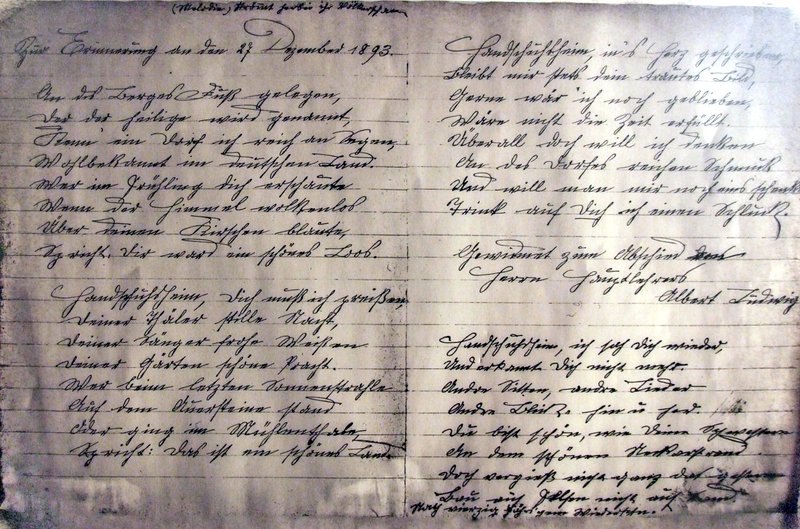 (Melodie: Strömt herbei ihr Völkerscharen
Zur Erinnerung an den 27 Dezember 1893.
An des Berges Fuß gelegen,
Der der heilige wird genannt,
Kenn' ein Dorf ich reich an Segen,
Wohlbekannt im deutschen Land.
Wer im Frühling dich erschaute
Wenn der Himmel wolkenlos
Über deinen Kirschen blaute,
Spricht: Dir ward ein schönes Loos.
Handschuhsheim, Dich muß ich preißen,
Deiner Thäler stille Nacht,
Deiner Sänger frohe Weißen
Deiner Gärten schöne Pracht.
Wer beim letzten Sonnenstrahle
Auf dem Auersteine stand
Oder ging im Mühlenthale,
Spricht: Das ist ein schönes Land
Handschuhsheim, in's Herz geschrieben,
Bleibt mir stets dein trautes Bild,
Gerne wär' ich noch geblieben,
Wäre nicht die Zeit erfüllt.
Überall doch will ich denken
An des Dorfes reichen Schmuck
Und will man mir noch eins schenken
Trink auf Dich ich einen Schluck.
Gewidmet zum Abschied
Herrn Hauptlehrers
Albert Ludwig
Handschuhsheim, ich sah Dich wieder,
Und erkannt Dich nicht mehr.
Andre Sitten, andre Lieder
Andre hin u her.
Du bist schön, wie deine Schwestern
An dem schönen Neckarstrand
Doch vergieß nicht ganz das gestern
Bau nicht auf Sand
Nach vierzig Jahr zum Wiedersehn.